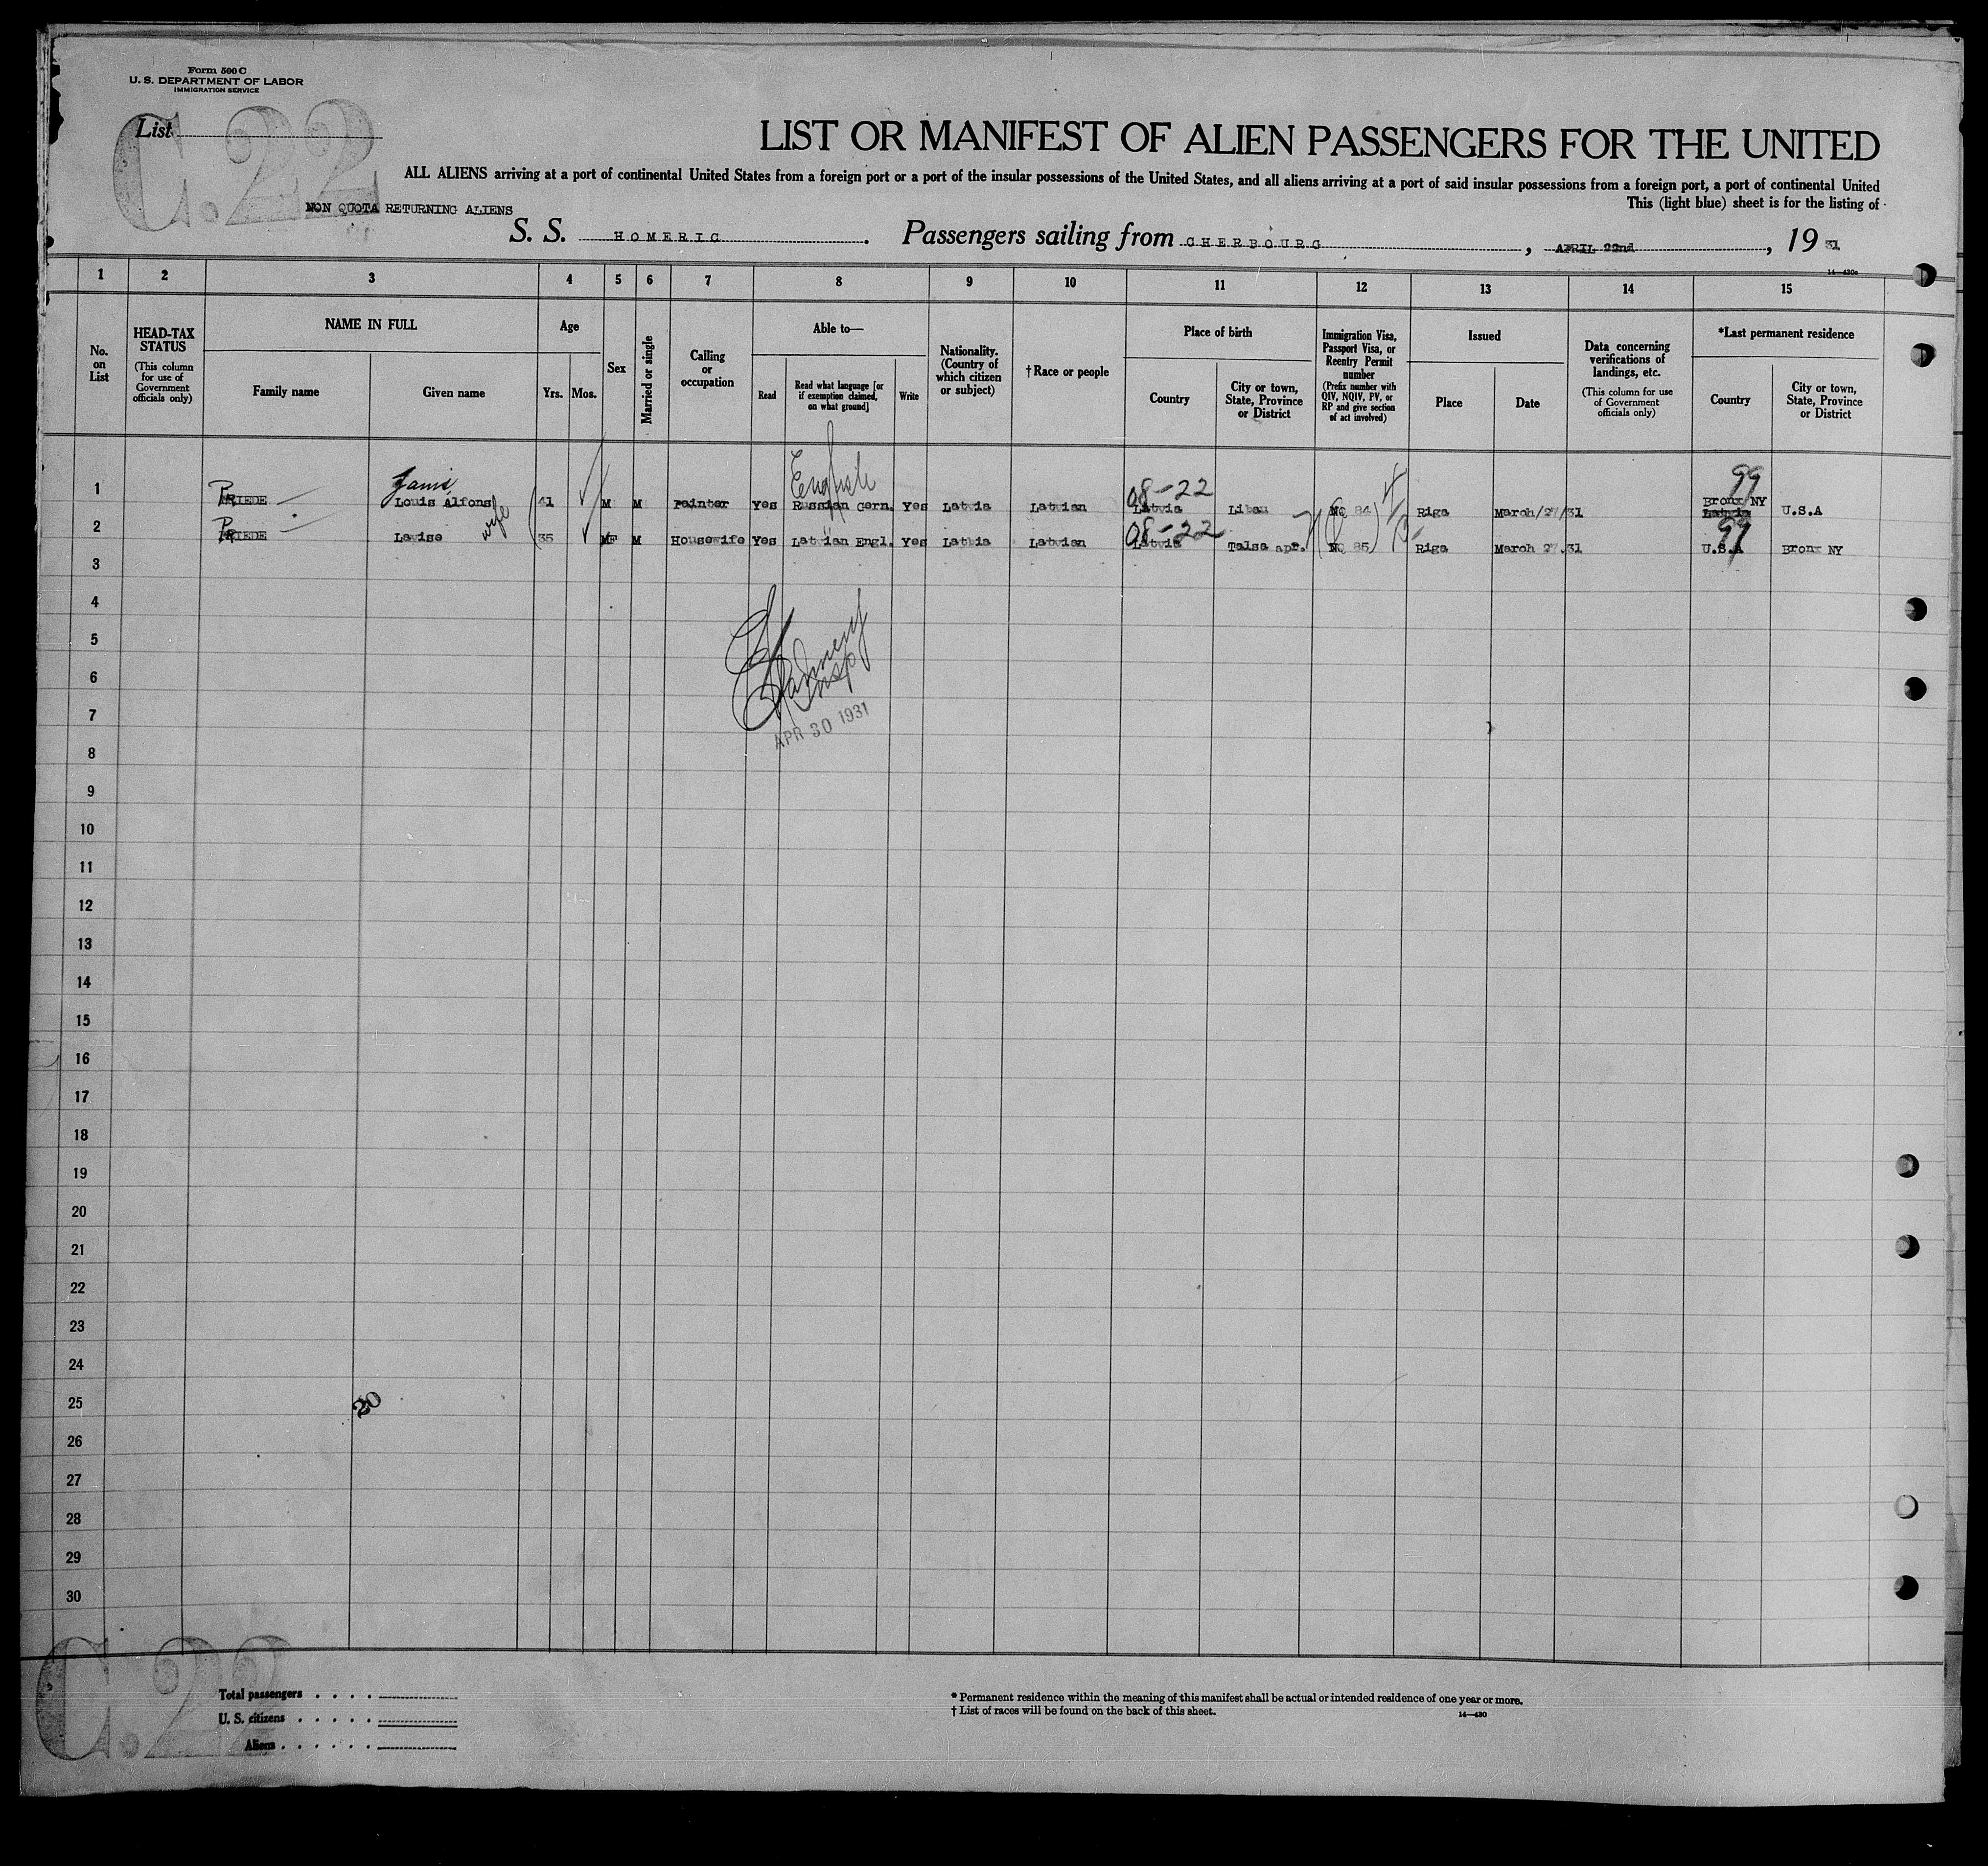 Form 500 C
U. S. DEPARTMENT OF LABOR
IMMIGRATION SERVICE
C.22
List
LIST OR MANIFEST OF ALIEN PASSENGERS FOR THE UNITED
ALL ALIENS arriving at a port of continental United States from a foreign port or a port of the insular possessions of the United States, and all aliens arriving at a port of said insular possessions from a foreign port, a port of continental United
This (light blue) sheet is for the listing of
NON QUOTA RETURNING ALIENS
S. S. HOMERIC. Passengers sailing from CHERBOURG, APRIL 22nd, 19 31
14—430c
1 2 3 4 5 6 7 8 9 10 11 12 13 14 15
No. on List
HEAD-TAX STATUS
(This column for use of Government officials only)
NAME IN FULL
Family name
Given name
Age
Yrs.
Mos.
Sex
Married or single
Calling or occupation
Able to—
Read
Read what language [or if exemption claimed, on what ground]
Write
Nationality. (Country of which citizen or subject)
†Race or people
Place of birth
Country
City or town, State, Province or District
Immigration Visa, Passport Visa, or Reentry Permit number
(Prefix number with QIV, NQIV, PV, or RP and give section of act involved)
Issued
Place
Date
Data concerning verifications of landings, etc.
(This column for use of Government officials only)
*Last permanent residence
Country
City or town, State, Province or District
Janis English 08-22 99
1 PRIEDE Louis Alfons 41 M M Painter Yes Russian Germ. Yes Latvia Latvian Latvia Libau NQ 84 Riga March/27/31 Bronx NY Latvia U.S.A
wife 08-22 99
2 PRIEDE Lavise 35 F M Housewife Yes Latvian Engl. Yes Latbia Latvian Latvia Talsa apr. NQ 85 Riga March 27.31 U.S.A Bronx NY
3
4
5
6
Insp
7
APR 30 1931
8
9
10
11
12
13
14
15
16
17
18
19
20
21
22
23
24
25
20
26
27
28
29
30
C.22
Total passengers
U. S. citizens
Aliens
* Permanent residence within the meaning of this manifest shall be actual or intended residence of one year or more.
† List of races will be found on the back of this sheet.
14—430